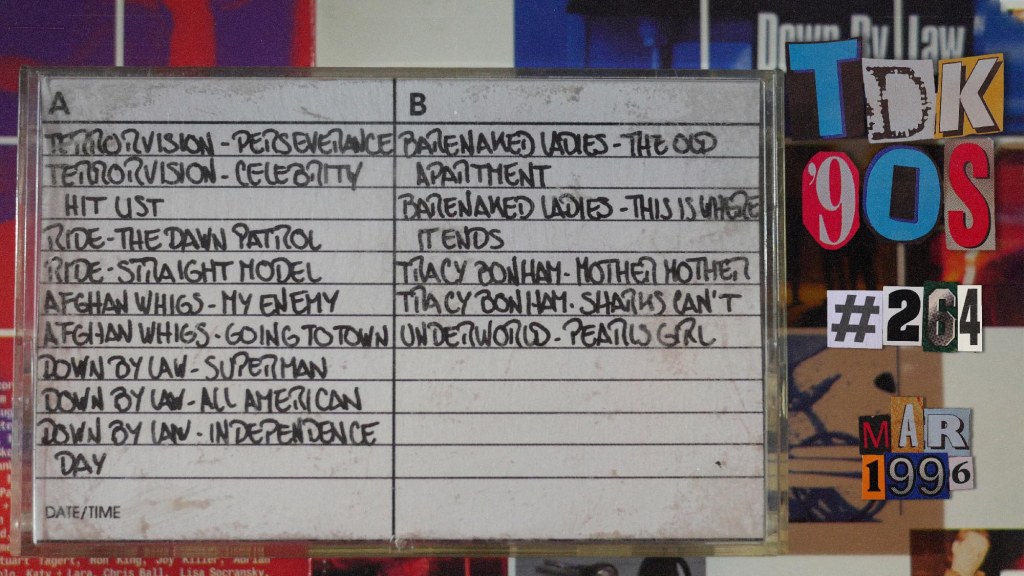 Down By Law
A
B
TERRORVISION - PERSEVERANCE
TERRORVISION - CELEBRITY
HIT LIST
RIDE - THE DAWN PATROL
RIDE - STRAIGHT MODEL
AFGHAN WHIGS - MY ENEMY
AFGHAN WHIGS - GOING TO TOWN
DOWN BY LAW - SUPERMAN
DOWN BY LAW - ALL AMERICAN
DOWN BY LAW - INDEPENDENCE
DAY
DATE/TIME
BARENAKED LADIES - THE OLD
APARTMENT
BARENAKED LADIES - THIS IS WHERE
IT ENDS
TRACY BONHAM - MOTHER MOTHER
TRACY BONHAM - SHARKS CAN'T
UNDERWORLD - PEARLS GIRL
TDK
'90S
#264
MAR
1996
Ron King, Joy Killer,
Katy & Lara, Chris Ball, Lisa Socransky,